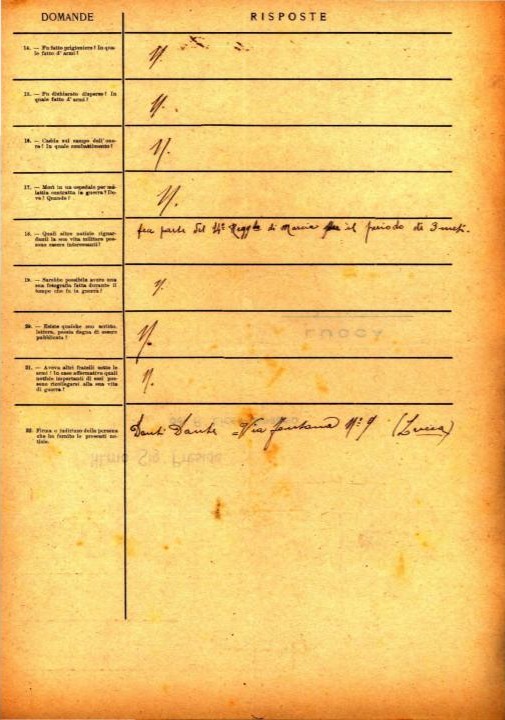 DOMANDE RISPOSTE
14. — Fu fatto prigioniero? In qua-
le fatto d'armi?
N.
15. — Fu dichiarato disperso? In
quale fatto d'armi?
N.
16. — Cadde sul campo dell'ono-
re? In quale combattimento?
N.
17. — Morì in un ospedale per ma-
lattia contratta in guerra? Do-
ve? Quando?
N.
18. — Quali altre notizie riguar-
danti la sua vita militare pos-
sono essere interessanti?
fea parte del 4° Regg.to di Marcia il periodo di 3 mesi.
19. — Sarebbe possibile avere una
sua fotografia fatta durante il
tempo che fu in guerra?
N.
20. — Esiste qualche suo scritto,
lettera, poesia degna di essere
pubblicata?
N.
21. — Aveva altri fratelli sotto le
armi? In caso affermativo quali
notizie importanti di essi pos-
sono ricollegarsi alla sua vita
di guerra?
N.
22. Firma e indirizzo della persona
che ha fornito le presenti no-
tizie.
Danti Dante = Via fontana N° 9 (Lucca)
LUCCA
Ill.mo Sig. Preside